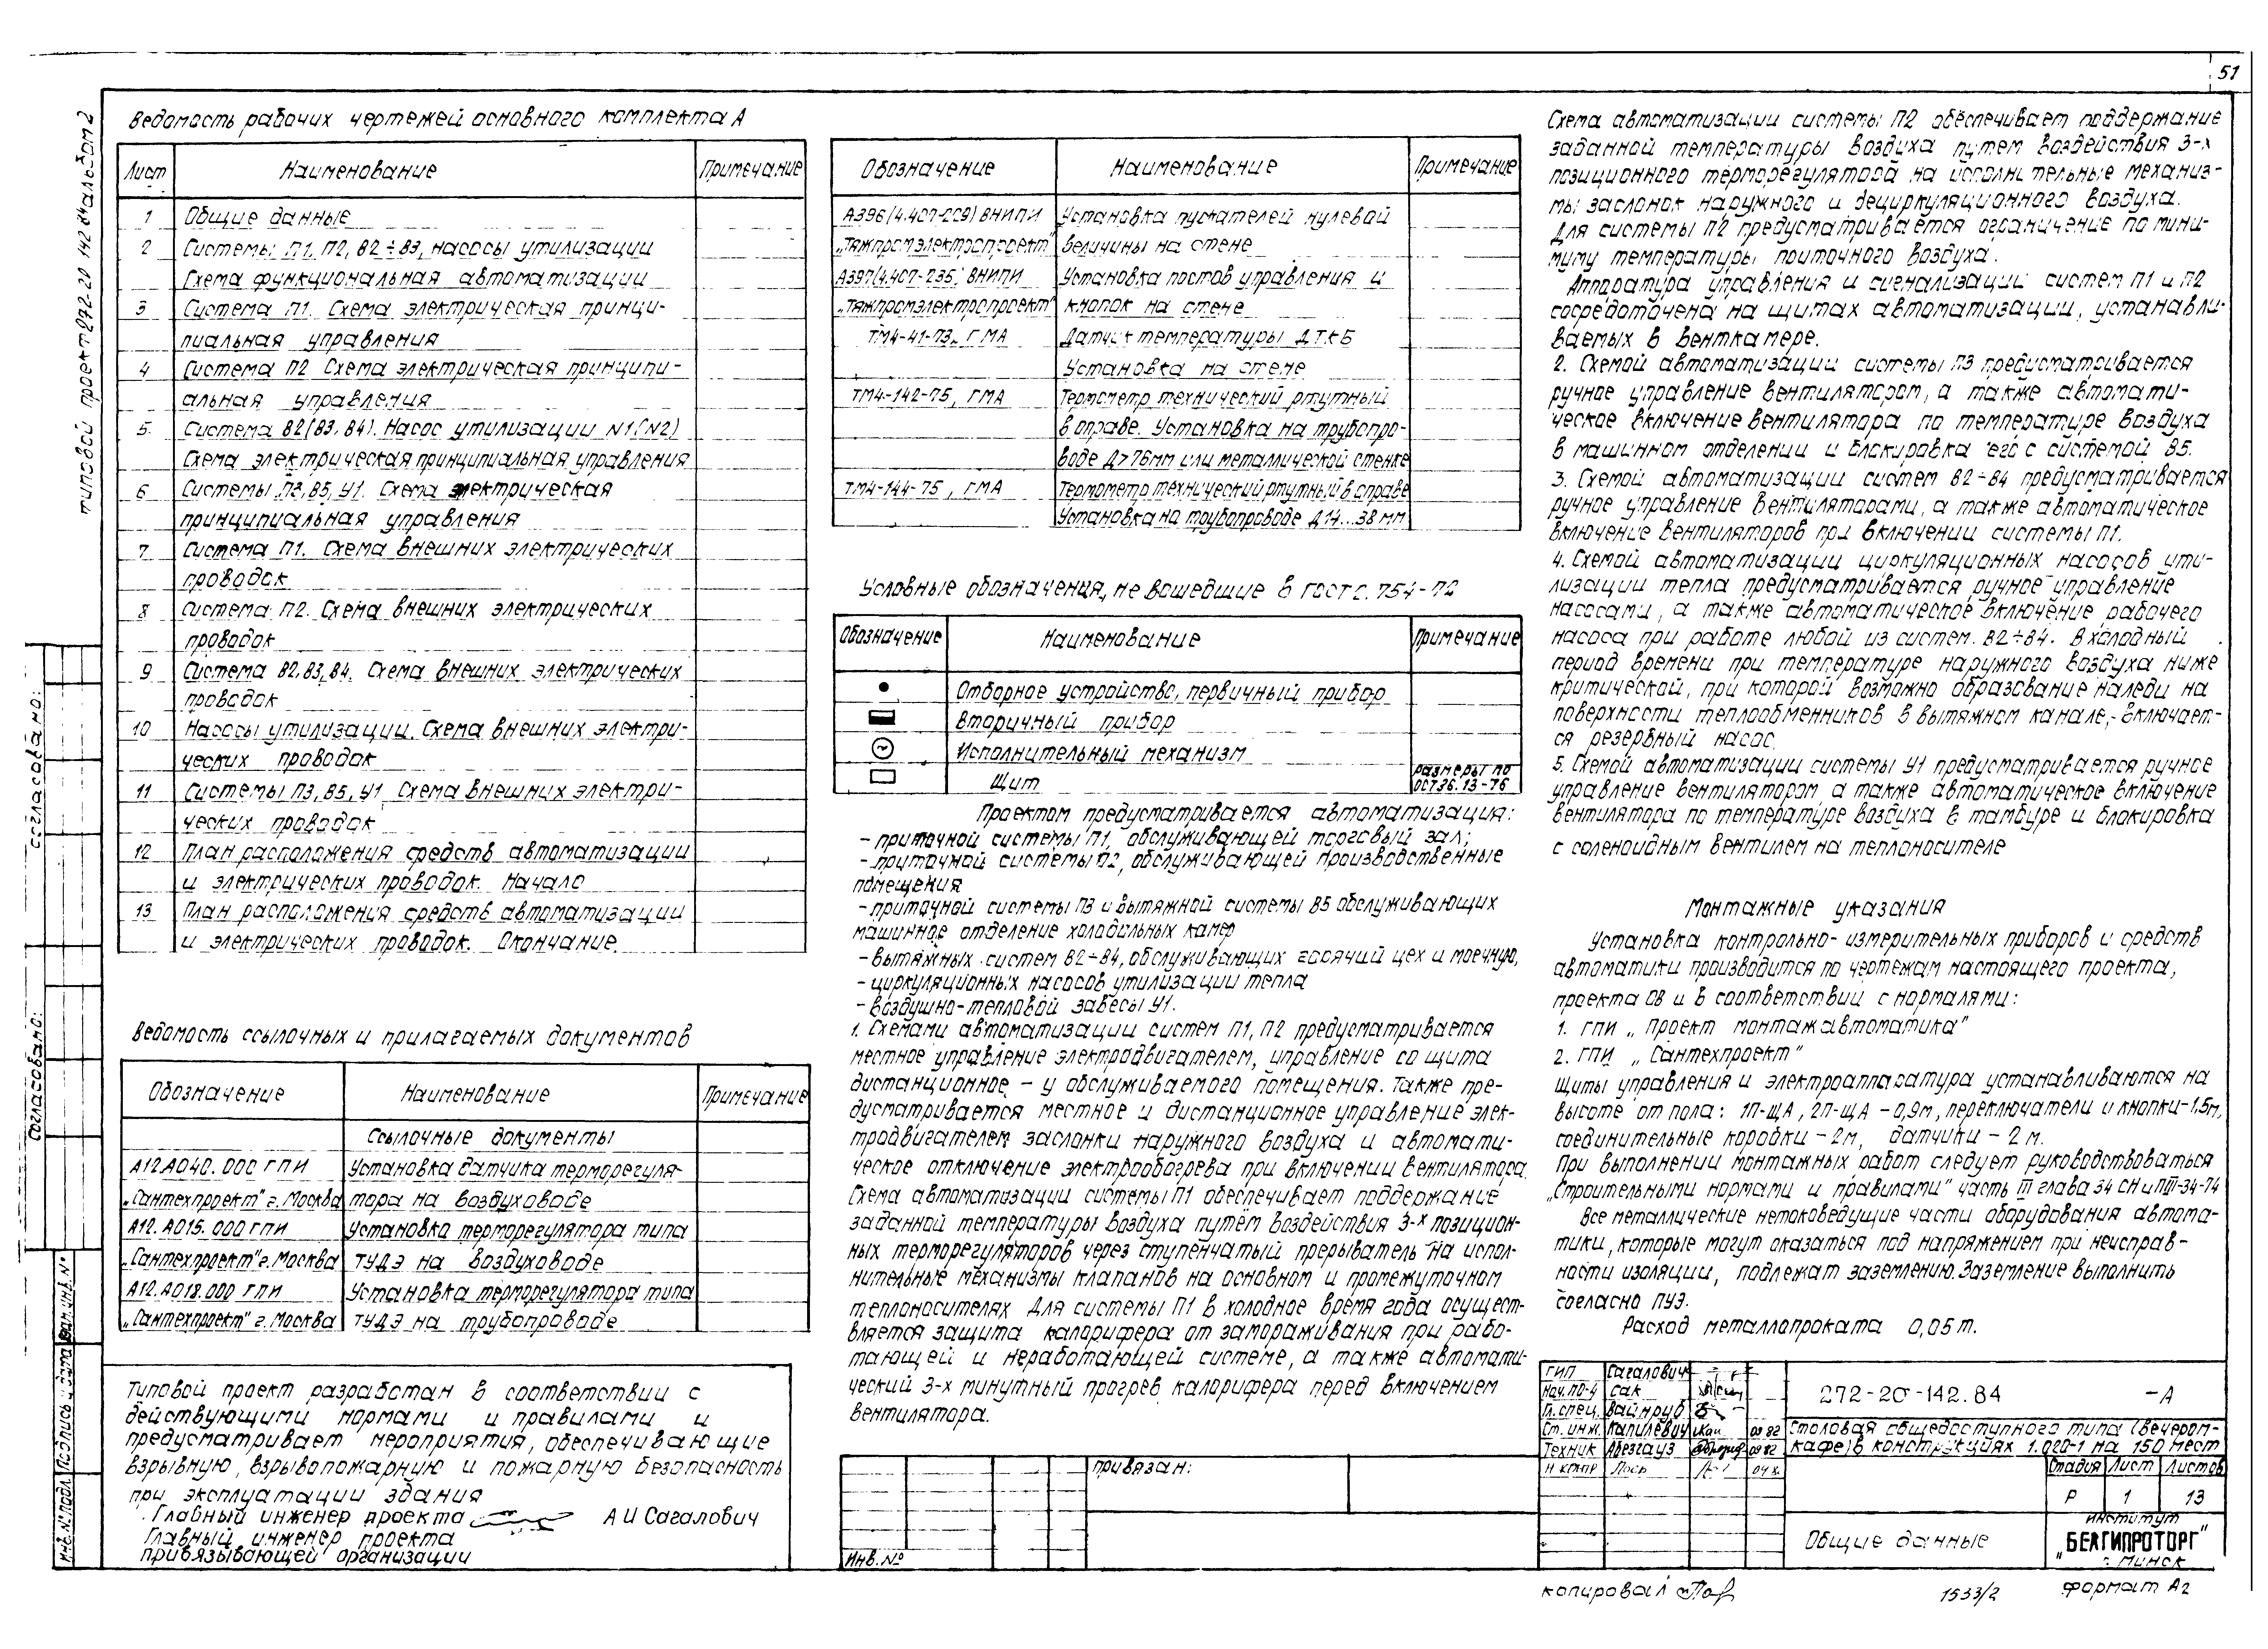 51
типовой проект 272-20-142.84 альбом 2
Ведомость рабочих чертежей основного комплекта А
Лист Наименование Примечание
1 Общие данные
2 Системы П1, П2, В2÷В3, насосы утилизации
Схема функциональная автоматизации
3 Система П1. Схема электрическая принци-
пиальная управления
4 Система П2 Схема электрическая принципи-
альная управления
5 Система В2(В3, В4). Насос утилизации N1(N2)
Схема электрическая принципиальная управления
6 Системы П3, В5, У1. Схема электрическая
принципиальная управления
7 Система П1. Схема внешних электрических
проводок
8 Система П2. Схема внешних электрических
проводок
9 Система В2, В3, В4. Схема внешних электрических
проводок
10 Насосы утилизации. Схема внешних электри-
ческих проводок
11 Системы П3, В5, У1 Схема внешних электри-
ческих проводок
12 План расположения средств автоматизации
и электрических проводок. Начало
13 План расположения средств автоматизации
и электрических проводок. Окончание.
Ведомость ссылочных и прилагаемых документов
Обозначение Наименование Примечание
Ссылочные документы
А12.А040.000 ГПИ Установка датчика терморегуля-
„Сантехпроект" г. Москва тора на воздуховоде
А12.А015.000 ГПИ Установка терморегулятора типа
„Сантехпроект" г. Москва ТУДЭ на воздуховоде
А12.А018.000 ГПИ Установка терморегулятора типа
„Сантехпроект" г. Москва ТУДЭ на трубопроводе
Типовой проект разработан в соответствии с
действующими нормами и правилами и
предусматривает мероприятия, обеспечивающие
взрывную, взрывопожарную и пожарную безопасность
при эксплуатации здания
Главный инженер проекта А И Сагалович
Главный инженер проекта
привязывающей организации
Обозначение Наименование Примечание
А396(4.407-229) ВНИПИ Установка пускателей нулевой
„Тяжпромэлектропроект" величины на стене
А397(4.407-235) ВНИПИ Установка постов управления и
„Тяжпромэлектропроект" кнопок на стене
ТМ4-41-73, ГМА Датчик температуры ДТКБ
Установка на стене
ТМ4-142-75, ГМА Термометр технический ртутный
в оправе. Установка на трубопро-
воде Д>76мм или металлической стенке
ТМ4-144-75, ГМА Термометр технический ртутный в оправе
Установка на трубопроводе Д14...38 мм
Условные обозначения, не вошедшие в ГОСТ 2.754-72
Обозначение Наименование Примечание
Отборное устройство, первичный прибор
Вторичный прибор
Исполнительный механизм
Щит размеры по ОСТ36.13-76
Проектом предусматривается автоматизация:
- приточной системы П1, обслуживающей торговый зал;
- приточной системы П2, обслуживающей производственные
помещения
- приточной системы П3 и вытяжной системы В5 обслуживающих
машинное отделение холодильных камер
- вытяжных систем В2÷В4, обслуживающих горячий цех и моечную,
- циркуляционных насосов утилизации тепла
- воздушно-тепловой завесы У1.
1. Схемами автоматизации систем П1, П2 предусматривается
местное управление электродвигателем, управление со щита
дистанционное - у обслуживаемого помещения. Также пре-
дусматривается местное и дистанционное управление элек-
тродвигателем заслонки наружного воздуха и автомати-
ческое отключение электрообогрева при включении вентилятора.
Схема автоматизации системы П1 обеспечивает поддержание
заданной температуры воздуха путём воздействия 3-х позицион-
ных терморегуляторов через ступенчатый прерыватель на испол-
нительные механизмы клапанов на основном и промежуточном
теплоносителях Для системы П1 в холодное время года осущест-
вляется защита калорифера от замораживания при рабо-
тающей и неработающей системе, а также автомати-
ческий 3-х минутный прогрев калорифера перед включением
вентилятора.
Схема автоматизации системы П2 обеспечивает поддержание
заданной температуры воздуха путем воздействия 3-х
позиционного терморегулятора на исполнительные механиз-
мы заслонок наружного и рециркуляционного воздуха.
Для системы П2 предусматривается ограничение по мини-
муму температуры приточного воздуха.
Аппаратура управления и сигнализации систем П1 и П2
сосредоточена на щитах автоматизации, устанавли-
ваемых в венткамере.
2. Схемой автоматизации системы П3 предусматривается
ручное управление вентилятором, а также автомати-
ческое включение вентилятора по температуре воздуха
в машинном отделении и блокировка его с системой В5.
3. Схемой автоматизации систем В2÷В4 предусматривается
ручное управление вентиляторами, а также автоматическое
включение вентиляторов при включении системы П1.
4. Схемой автоматизации циркуляционных насосов ути-
лизации тепла предусматривается ручное управление
насосами, а также автоматическое включение рабочего
насоса при работе любой из систем. В2÷В4. В холодный
период времени при температуре наружного воздуха ниже
критической, при которой возможно образование наледи на
поверхности теплообменников в вытяжном канале, включает-
ся резервный насос.
5. Схемой автоматизации системы У1 предусматривается ручное
управление вентилятором а также автоматическое включение
вентилятора по температуре воздуха в тамбуре и блокировка
с соленоидным вентилем на теплоносителе
Монтажные указания
Установка контрольно-измерительных приборов и средств
автоматики производится по чертежам настоящего проекта,
проекта ОВ и в соответствии с нормалями:
1. ГПИ „Проект монтажавтоматика"
2. ГПИ „Сантехпроект"
Щиты управления и электроаппаратура устанавливаются на
высоте от пола: 1П-ЩА, 2П-ЩА - 0,9м, переключатели и кнопки-1,5м,
соединительные коробки - 2м, датчики - 2 м.
При выполнении монтажных работ следует руководствоваться
„Строительными нормами и правилами" часть III глава 34 СНиПIII-34-74
Все металлические нетоковедущие части оборудования автома-
тики, которые могут оказаться под напряжением при неисправ-
ности изоляции, подлежат заземлению. Заземление выполнить
согласно ПУЭ.
Расход металлопроката 0,05 т.
согласовано:
Согласовано:
инв. № подл. Подпись и дата Взам. инв. №
привязан:
Инв. №
ГИП Сагалович
Нач. ПО-4 Сак
Гл. спец. Вайнруб
Ст. инж. Капилевич 09 82
Техник Абезгауз 09 82
Н контр Лось
272-20-142.84 -А
Столовая общедоступного типа (вечером-
кафе) в конструкциях 1.020-1 на 150 мест
Стадия Лист Листов
Р 1 13
Общие данные
институт
„БЕЛГИПРОТОРГ"
г. Минск
копировал
1533/2
формат А2